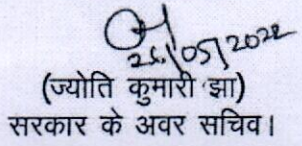 25/05/2022
(ज्योति कुमारी झा)
सरकार के अवर सचिव।